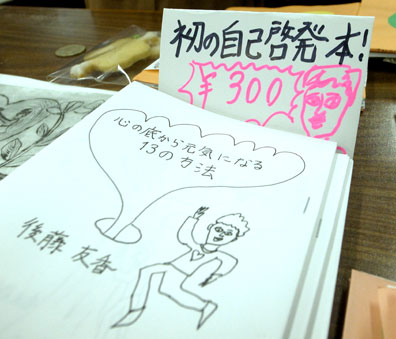 初の自己啓発本!
¥300
心の底から元気になる
13の方法
後藤友香